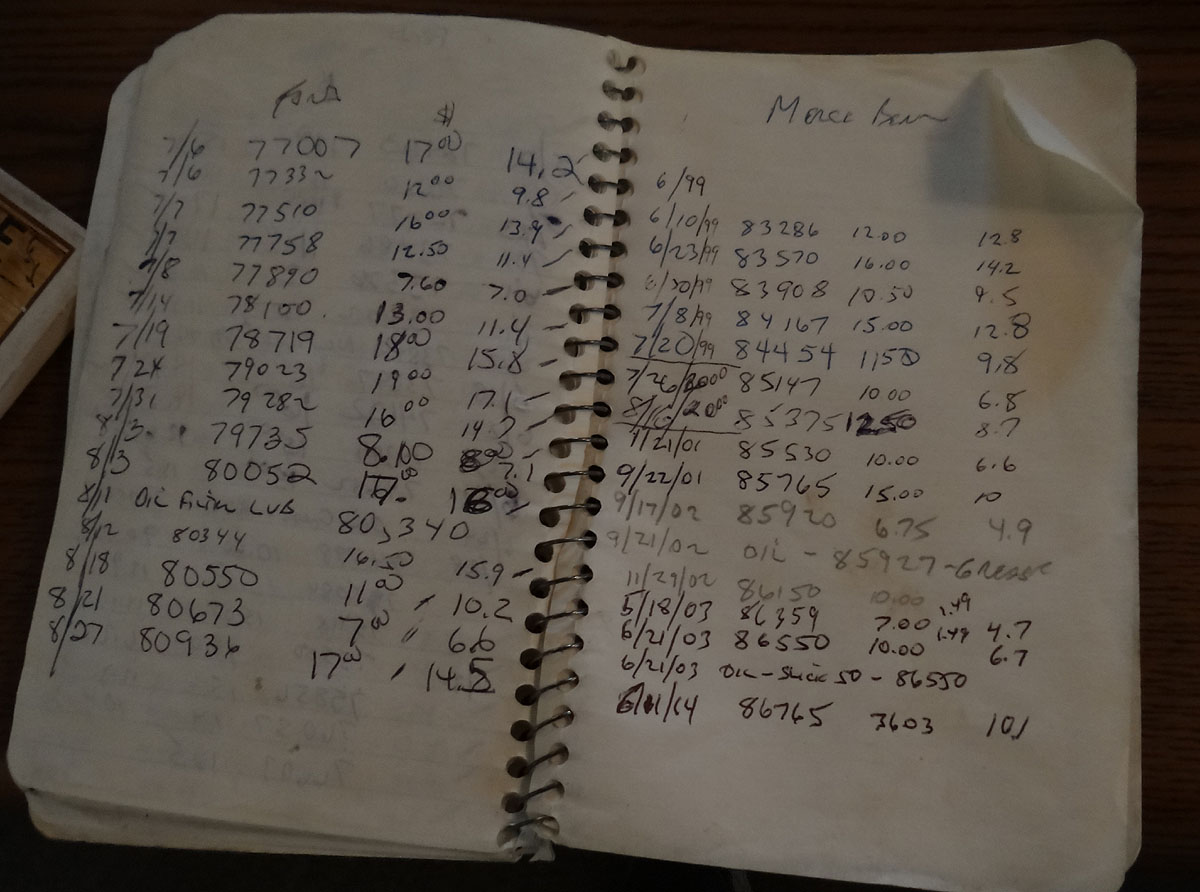 $
7/6 77007 17.00 14.2
7/6 7733 12.00 9.8
7/7 77510 16.00 13.9
7/7 77758 12.50 11.4
7/8 77890 7.60 7.0
7/14 78100. 13.00 11.4
7/19 78719 18.00 15.8
7 24 79023 19.00 17.1
7/31 79282 16.00 14.7
8/3 79735 8.00 7.1
8/3 80052
8/11 OIL LUB 80,340
8/12 80344 16.50 15.9
8/18 80550 11.00 10.2
8/21 80673 7.00 6.6
8/27 80936 17.00 14.5
6/99
6/10/99 83286 12.00 12.8
6/23/99 83570 16.00 14.2
6/30/99 83908 10.50 9.5
7/8/99 84167 15.00 12.8
7/20/99 84454 11.50 9.8
7/26/2000 85147 10.00 6.8
8/16/2000 85375 12.50 8.7
1/21/01 85530 10.00 6.6
9/22/01 85765 15.00 10
9/17/02 85920 6.75 4.9
9/21/02 OIL - 85927 - GREASE
11/29/02 86150 10.00
5/18/03 86359 7.00 1.49 4.7
6/21/03 86550 10.00 1.49 6.7
6/21/03 OIL - SLICK 50 - 86550
86765 3603 101